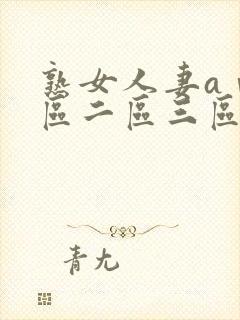 熟女人妻a
區二區三區
青尢